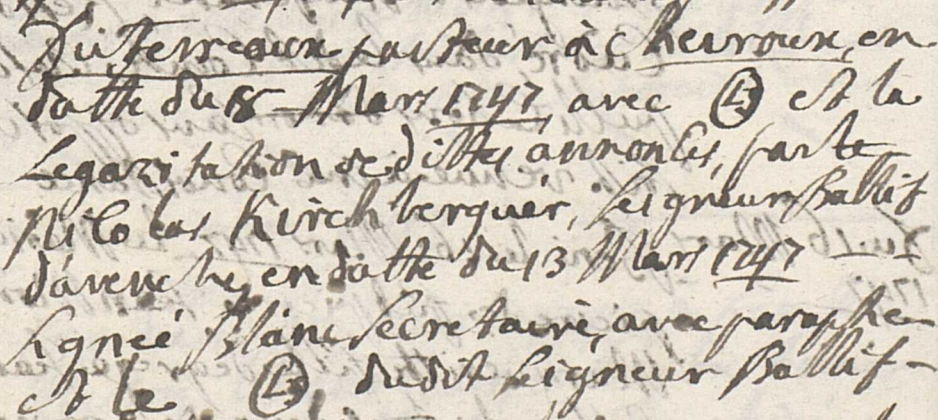 DuTerreaux pasteur à Chevroux, en
datte du 8 Mars 1747 avec (LS) et la
Legazitation sedittes annonces, par le
Nicolas Kirchberguér, Seigneur Ballif
d'avenche, en datte du 13 Mars 1747
signeé Blanc Secretaire, avec paraphe
et le (LS) dudit Seigneur Ballif